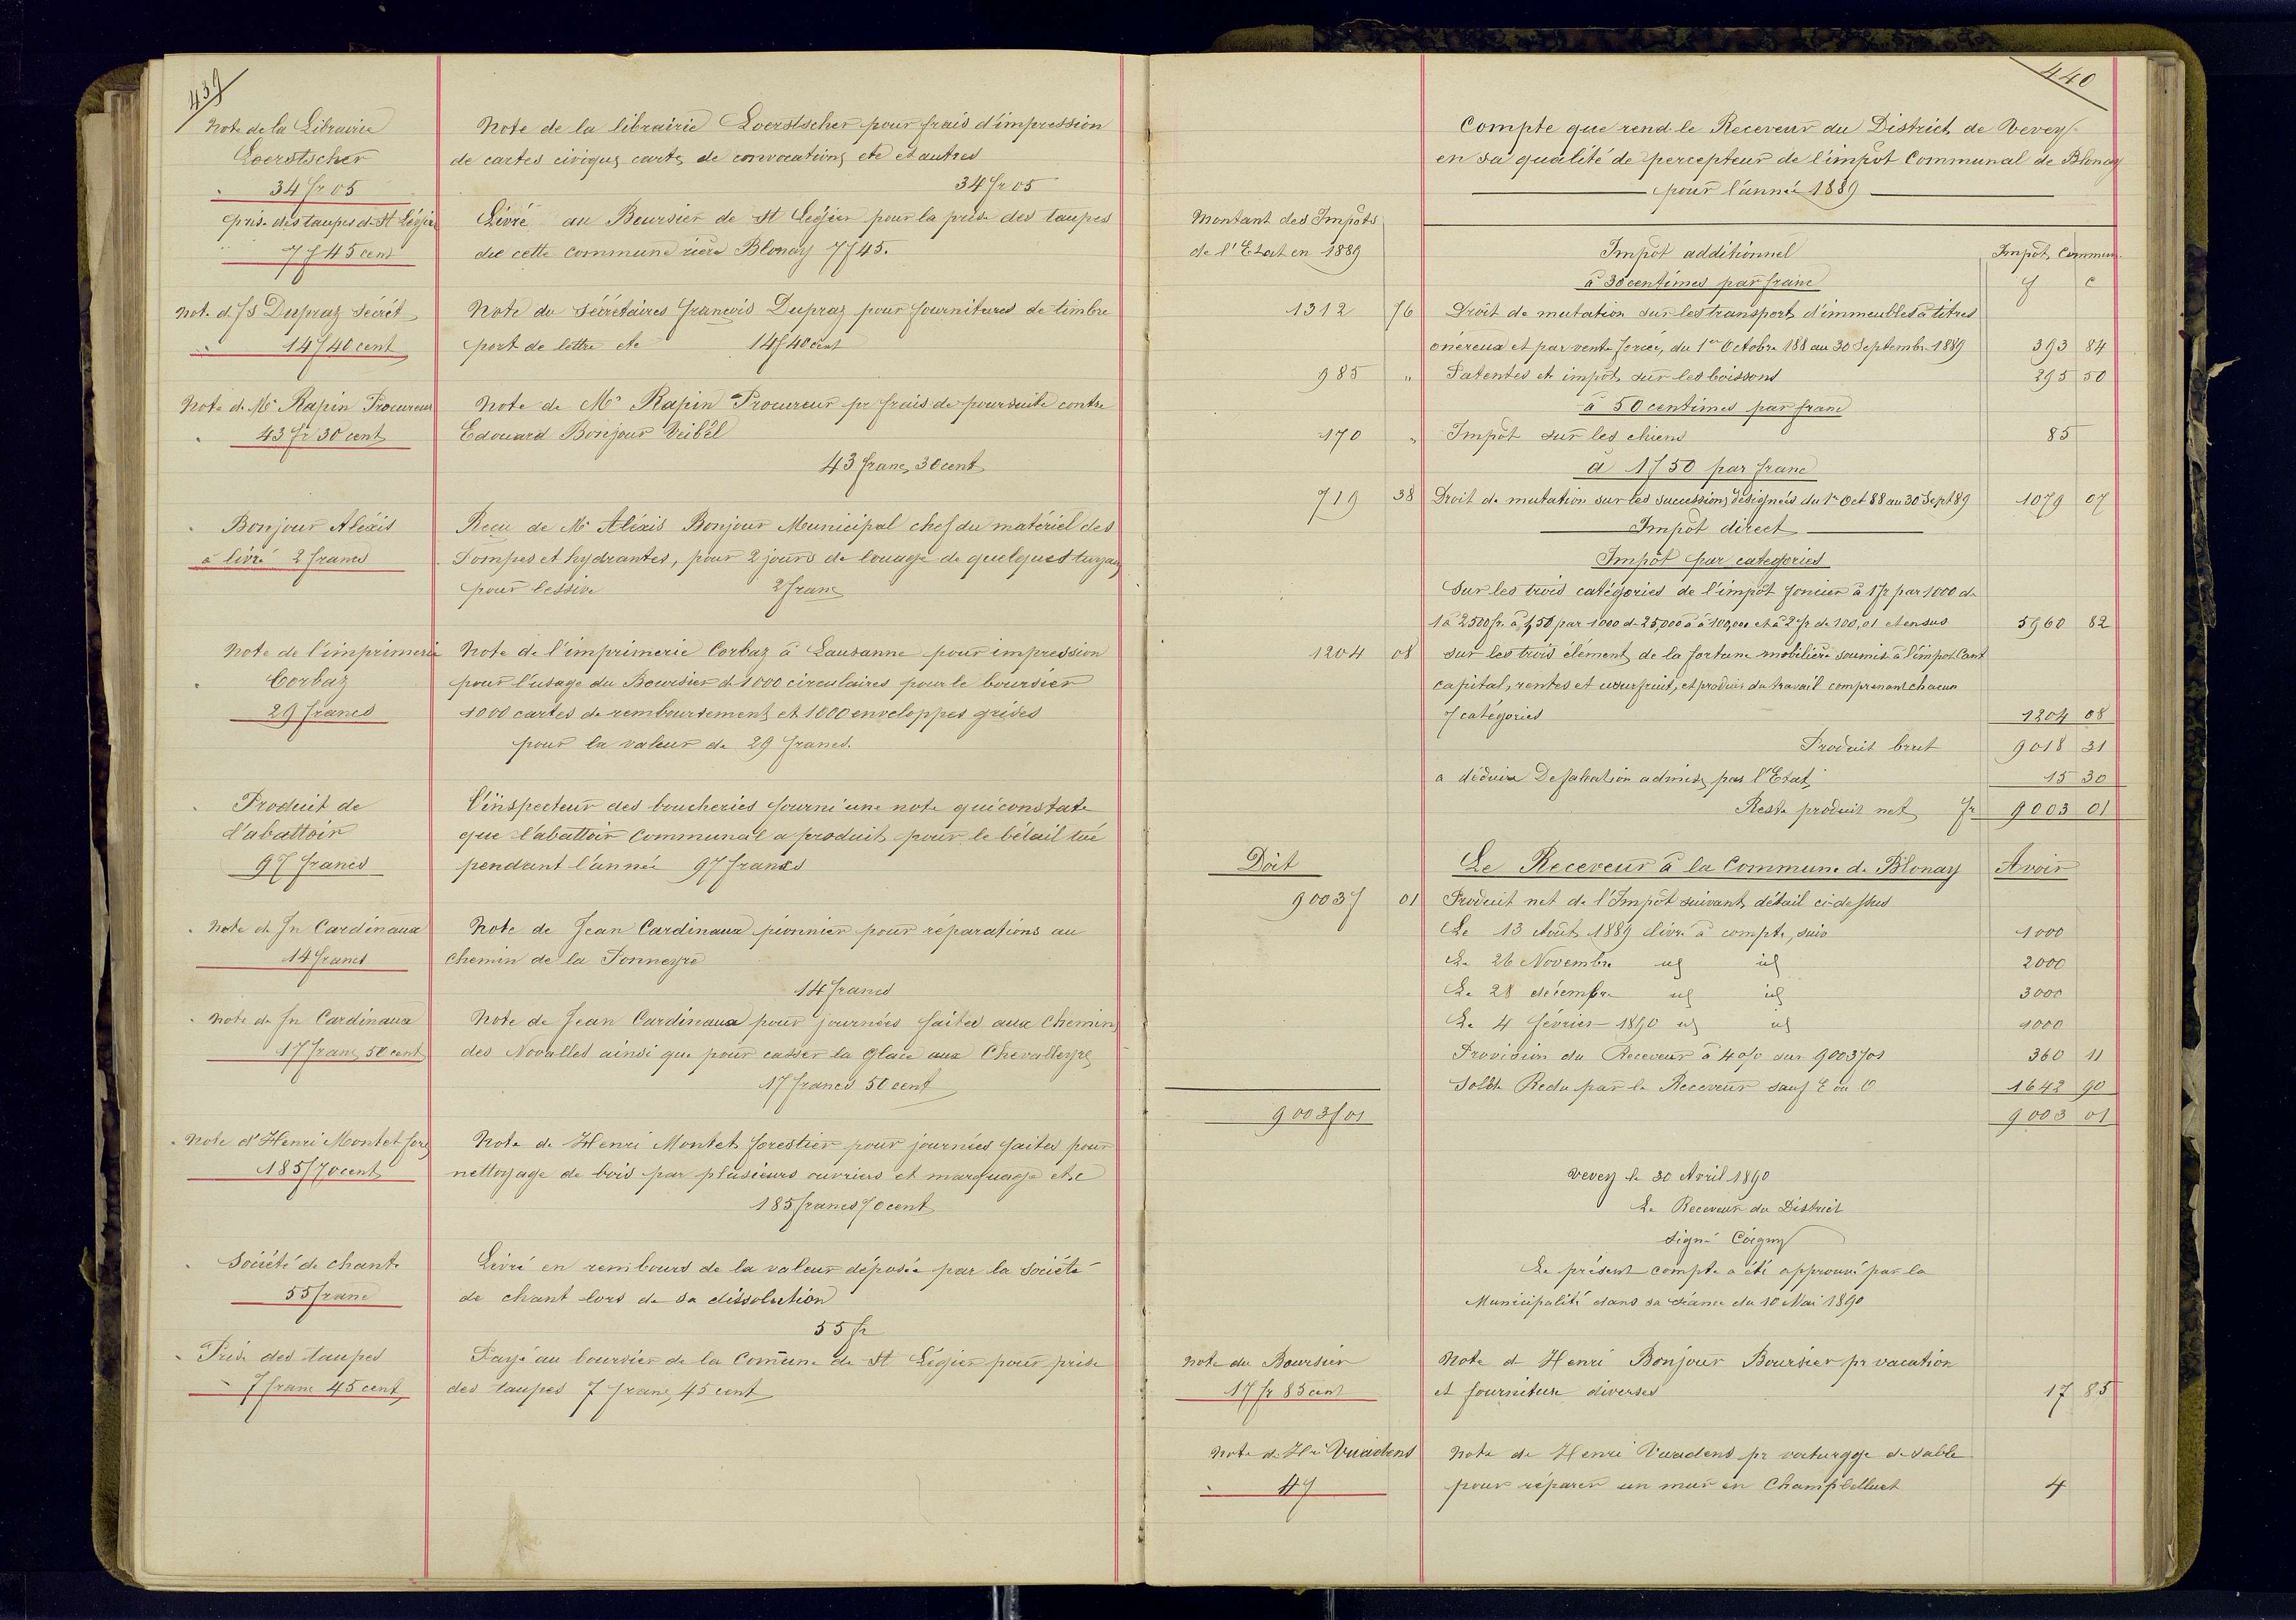 439
Note de la Librairie
Loerstscher
34 fr 05
Note de la librairie Loerstscher pour frais d'impression
de cartes civiques cartes de convocations etc et autres
34 fr 05
prise des taupes de St Légier
7 f 45 cent
Livré au Boursier de St Legier pour la prise des taupes
de cette commune rière Blonay 7 f 45.
Note d. fs Dupraz Secrét
14 f 40 cent
Note du Sécrétaires françois Dupraz pour fournitures de timbre
port de lettre etc 14 f 40 cent
Note de Mr Rapin Procureur
43 fr 30 cent
Note de Mr Rapin Procureur pr frais de poursuite contre
Edouard Bonjour Veibel
43 francs 30 cent
Bonjour Aléxis
à livré 2 francs
Recu de Mr Aléxis Bonjour Municipal chef du matériel des
Pompes et hydrantes, pour 2 jours de louage de quelques tuyaux
pour lessive 2 franc
Note de l'imprimerie
Corbaz
29 francs
Note de l'imprimerie Corbaz à Lausanne pour impression
pour l'usage du Boursier de 1000 circulaires pour le boursier
1000 cartes de remboursements et 1000 enveloppes grises
pour la valeur de 29 francs.
Produit de
l'abattoir
97 francs
L'inspecteur des boucheries fourni une note qui constate
que l'abattoir Communal a produit pour le bétail tué
pendant l'année 97 francs
Note de Jn Cardinaux
14 francs
Note de Jean Cardinaux pionnier pour réparations au
chemin de la Tonneyre
14 francs
Note de Jn Cardinaux
17 francs 50 cent
Note de Jean Cardinaux pour journées faites aux chemins
des Novalles ainsi que pour casser la glace aux Chevalleyres
17 francs 50 cent
Note d'Henri Montet fores
185 f 70 cent
Note de Henri Montet forestier pour journées faites pour
nettoyage de bois par plusieurs ouvriers et marquage etc
185 francs 70 cent
Société de chant
55 franc
Livré en rembours de la valeur déposée par la société
de chant lors de sa dissolution
55 fr
Prise des taupes
7 franc 45 cent
Payé au boursier de la Comune de St Légier pour prise
des taupes 7 franc, 45 cent
440
Compte que rend le Receveur du District de Vevey
en sa qualité de percepteur de l'impôt Communal de Blonay
pour l'année 1889
Montant des Impôts
de l'Etat en 1889
Impôt additionnel Impôt Commun.
à 30 centimes par franc f c
1312 76 Droit de mutation sur les transports d'immeubles à titres
onéreux et par vente forcée, du 1er Octobre 188 au 30 Septembre 1889 393 84
985 " Patentes et impôts sur les boissons 295 50
à 50 centimes par franc
170 " Impôt sur les chiens 85
à 1 f 50 par franc
719 38 Droit de mutation sur les successions désignées du 1er Oct 88 au 30 Sept 89 1079 07
Impôt direct
Impôt par catégories
Sur les trois catégories de l'impôt foncier à 1 fr par 1000 de
1 à 2500 fr. à 1,50 par 1000 de 25,000 à à 100,000 et à 2 fr de 100,01 et en sus 5960 82
1204 08 sur les trois élément de la fortune mobilière soumise à l'impôt Cant
capital, rentes et usurfruit, et produit du travail comprenant chacun
7 catégories 1204 08
Produit brut 9018 31
a déduire Defalcation admise par l'Etat 15 30
Reste produit net fr 9003 01
Doit Le Receveur à la Commune de Blonay Avoir
9003 f 01 Produit net de l'Impôt suivant détail ci-dessus
Le 13 Août 1889 livré à compte, suiv 1000
Le 26 Novembre id id 2000
Le 28 décembre id id 3000
Le 4 février 1890 id id 1000
Provision du Receveur à 4 0/0 sur 9003 f 01 360 11
Solde Redu par le Receveur sauf E ou O 1642 90
9003 f 01 9003 01
Vevey le 30 Avril 1890
Le Receveur du District
signé
Le présent compte a été approuvé par la
Municipalité dans sa séance du 10 Mai 1890
Note du Boursier
17 fr 85 cent
Note de Henri Bonjour Boursier pr vacation
et fourniture diverses 17 85
Note de Hri Vuadens
4 f
Note de Henri Vuadens pr voiturage de sable
pour réparer un mur en Champbelluet 4